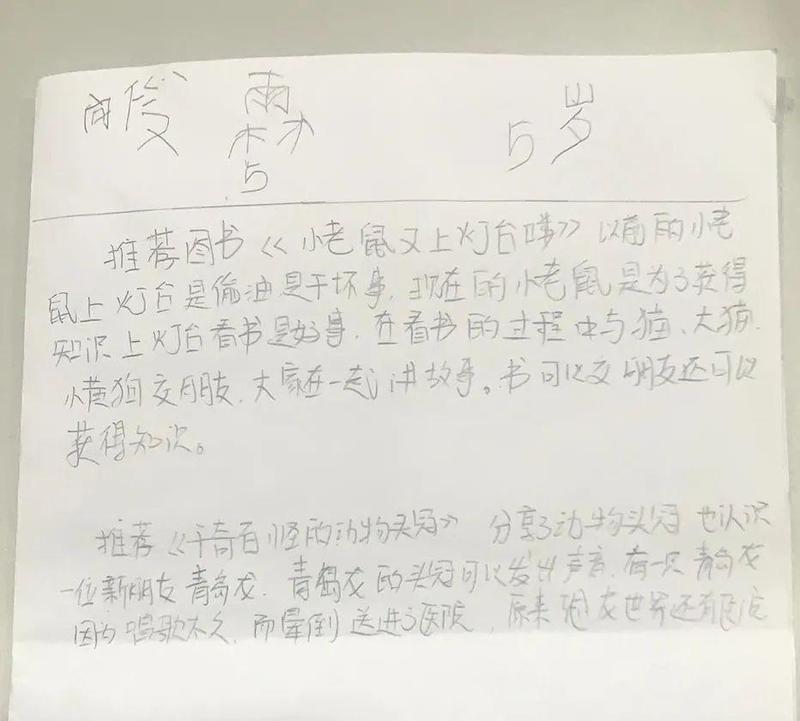 5岁
5
推荐图书《小老鼠又上灯台喽》以前的小老
鼠上灯台是偷油是干坏事,现在的小老鼠是为了获得
知识上灯台看书是好事.在看书的过程中与猫、大狗、
小黄狗交朋友,大家在一起讲故事。书可以交朋友还可以
获得知识。
推荐《千奇百怪的动物头冠》 分享了动物头冠 也认识
一位新朋友青岛龙.青岛龙的头冠可以发出声音.有一只青岛龙
因为唱歌太久,而晕倒送进了医院,原来恐龙世界还有医院